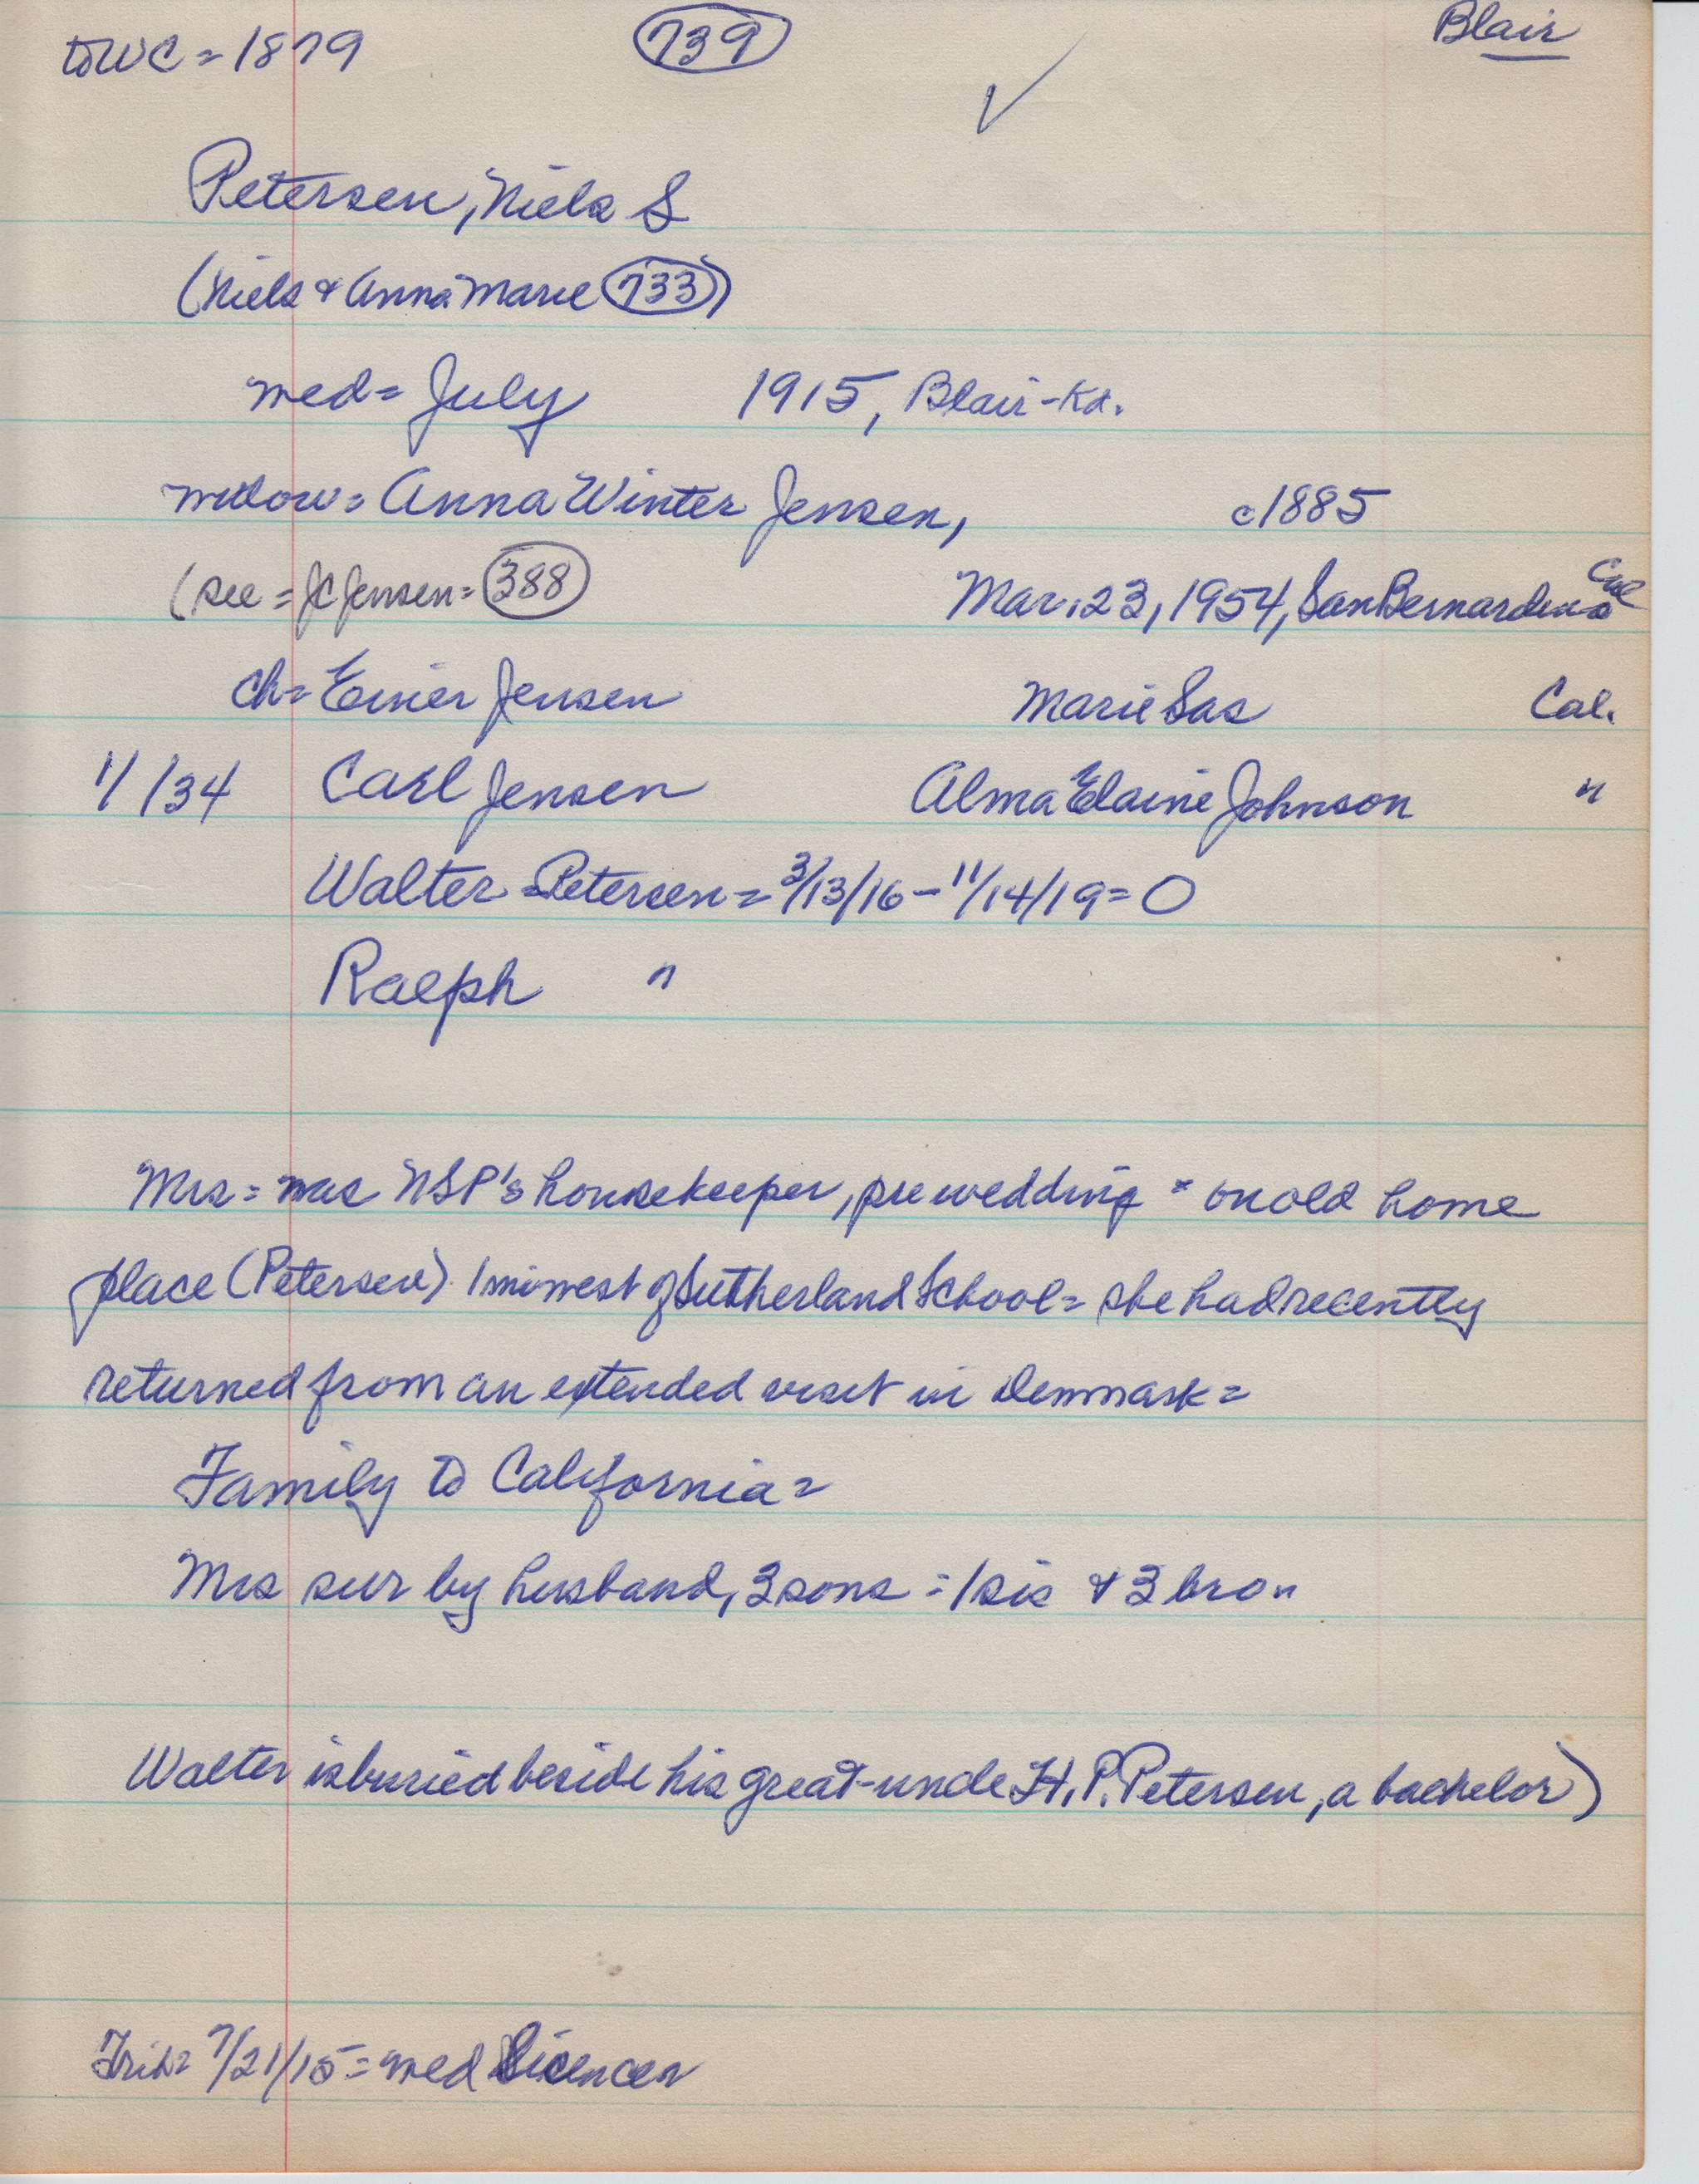 to WC = 1879 (739) Blair
Petersen, Niels S
(Niels & Anna Marie (733))
med = July 1915, Blair - Ka.
widow = Anna Winter Jensen, c1885
(see = JC Jensen = (388) Mar. 23, 1954, San Bernardino Cal
ch = Einer Jensen Marie Sas Cal.
1/ /34 Carl Jensen Alma Elaine Johnson "
Walter = Petersen = 3/13/16 - 11/14/19 = 0
Ralph "
Mrs = was NSP's housekeeper, pre wedding = on old home
place (Petersen) 1 mi west of Sutherland School = she had recently
returned from an extended visit in Denmark =
Family to California =
Mrs sur by husband, 3 sons = 1 sis & 3 bro.
Walter is buried beside his great-uncle H. P. Petersen, a bachelor)
Trib = 7/21/15 = med licences